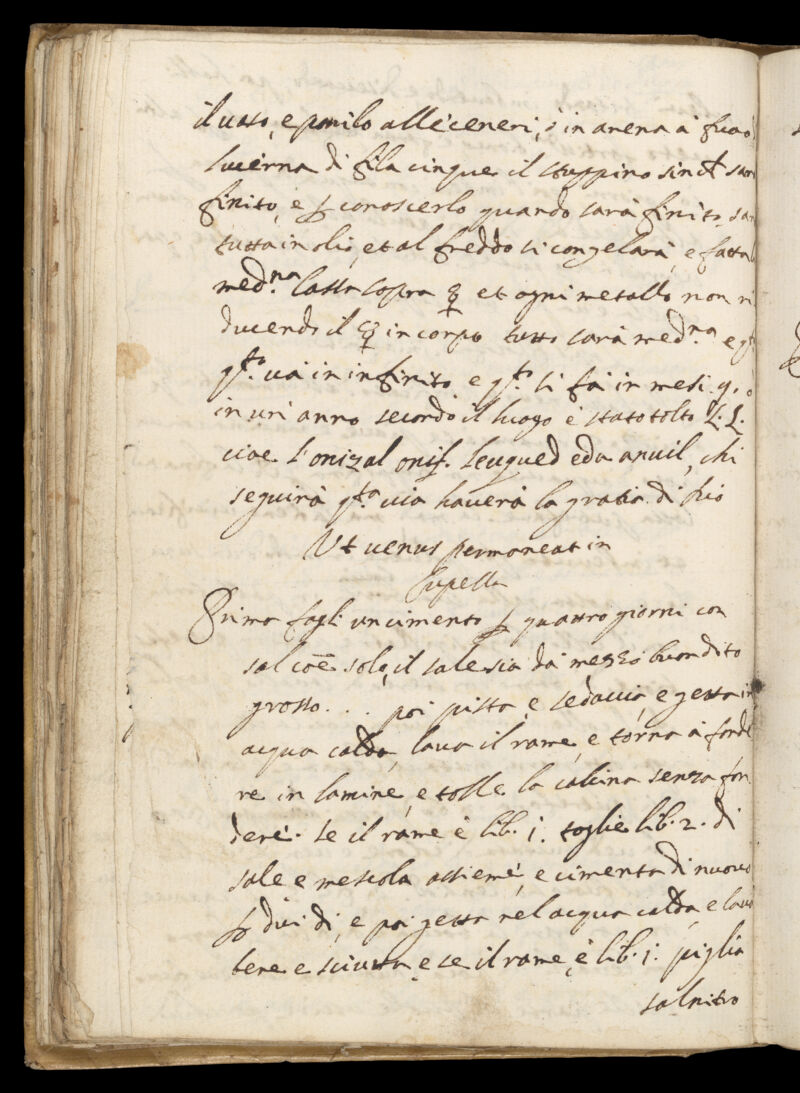 il uaso, e ponilo alle ceneri, ò in arena à fuoco
lucerna di fila cinque il stuppino
finito, e ꝑ conoscerlo quando sarà finito,
tutta in olio, et al freddo si congelarà, e fatta
med.na lassa sopra ☿ et ogni metallo non ri
ducendo il ☿ in corpo tutto sarà med.na e
q.to uà in infinito, e q.to si fà in mesi 9. ò
in un anno secondo il luogo è stato tolto L. L.
chi
seguirà q.ta uia hauerà la gratia di
Vt uenus permaneat in
cupella
Primo fagli un cimento ꝑ quattro giorni con
sal coē solo, il sale sia da mezzo buon dito
grosso . . . poi pista, e sedaccia, e getta in
acqua calda, laua il rame, e torna à fonde
re in lamine, e tolle la calcina senza fon
dere. se il rame è lib. j. toglie lib. 2. di
sale e mescola assieme, e cimenta di nuouo
ꝑ dui dì, e poi getta nel acqua calda, e laua
bene e sciutta, e se il rame, è lib. j. piglia
salnitro